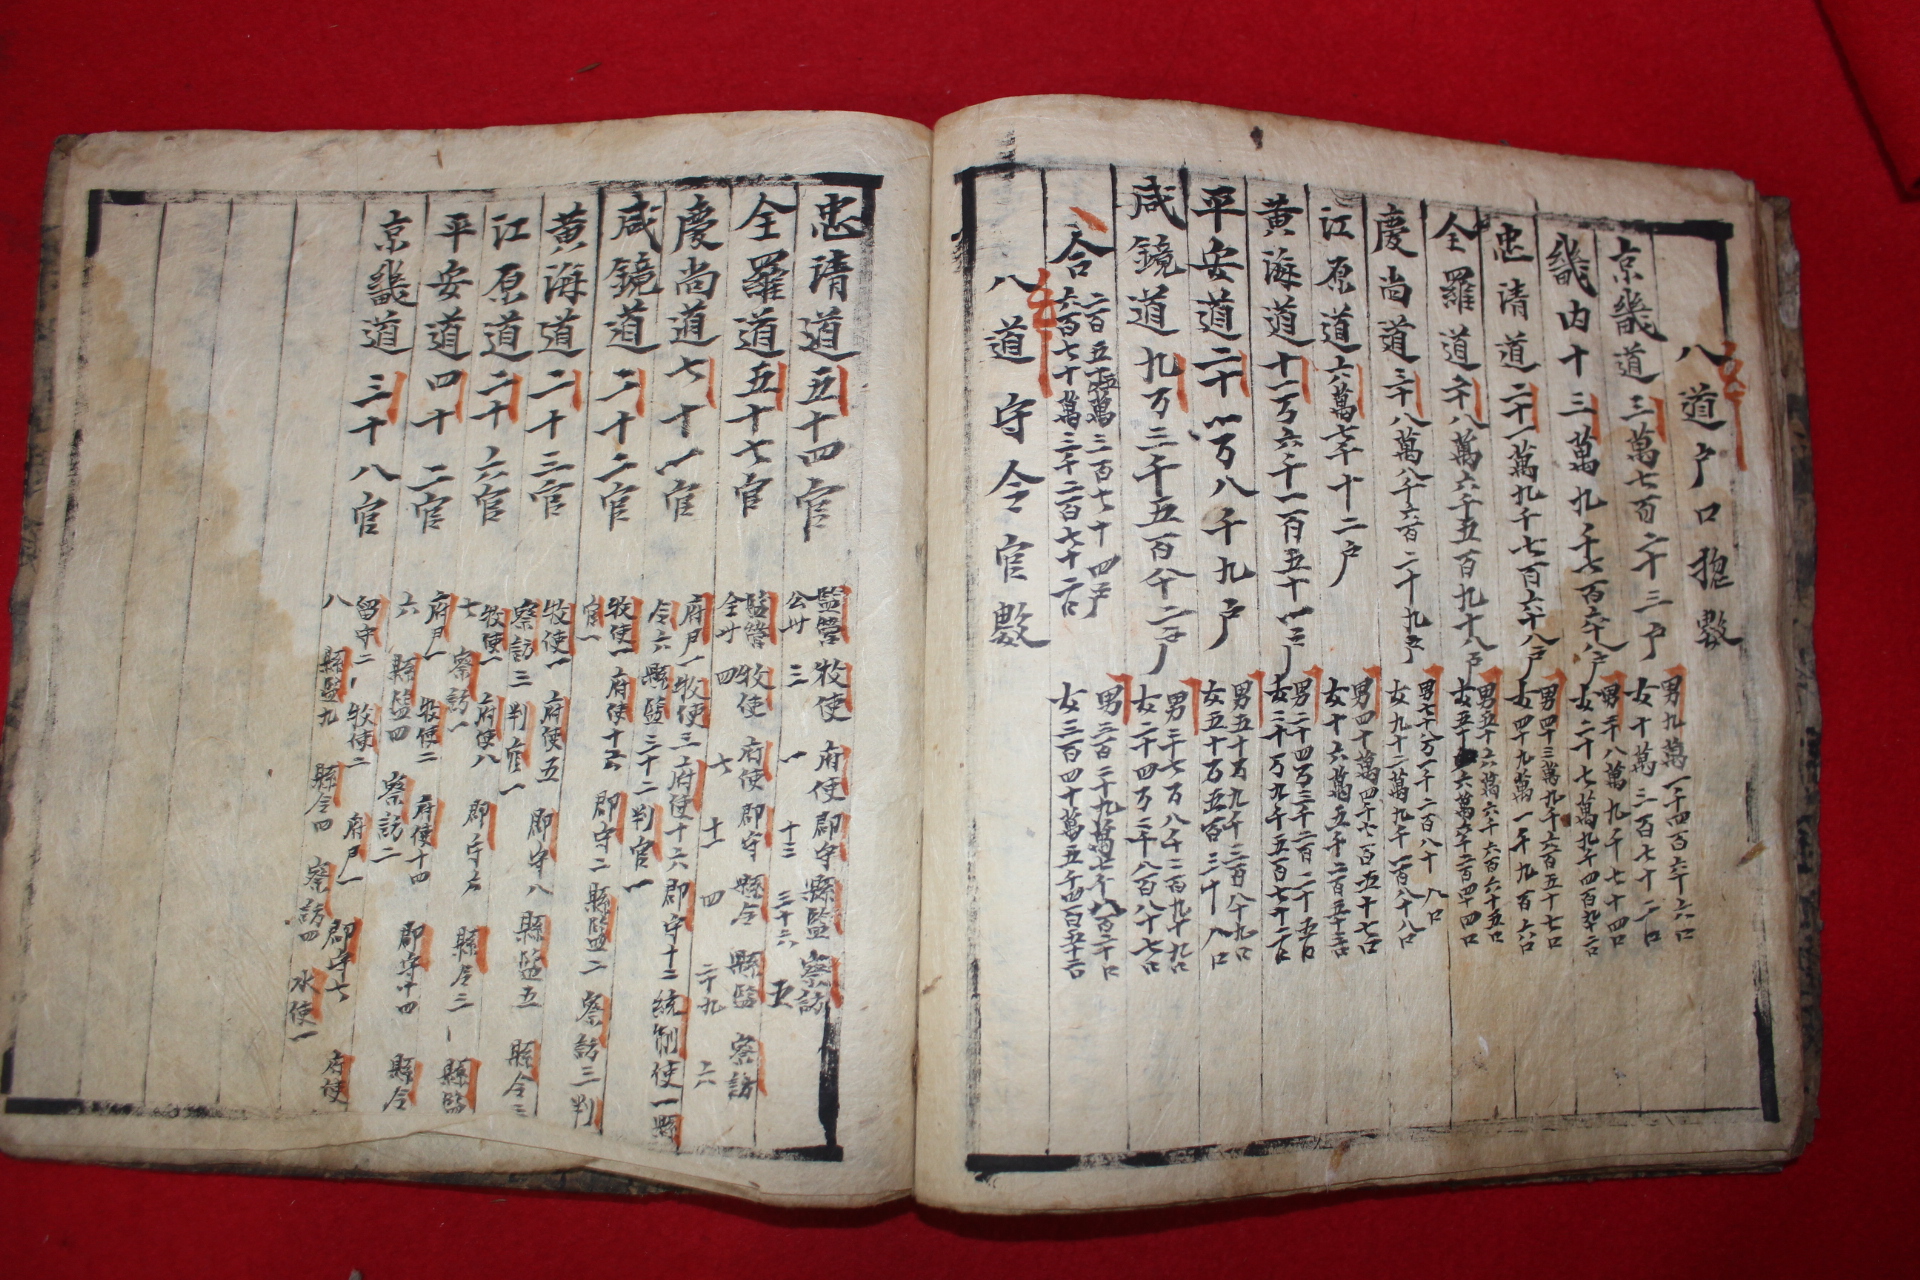 八道戶口摠數
京畿道三萬七百二十三戶 男九萬一千四百六十六口
女十萬三百七十二口
畿内十三萬九千七百六十八戶 男二十八萬九千七十四口
女二十七萬九千四百九十二口
忠清道二十一萬九千七百六十八戶 男四十三萬九千六百五十七口
女四十九萬一千九百六口
全羅道二十八萬六千五百九十八戶 男五十六萬六千六百六十五口
女五十六萬六千二百四十四口
慶尚道三十八萬八千六百二十九戶 男七十八万一千二百八十八口
女九十二萬九千一百八十八口
江原道六萬七千十二戶 男四十萬四千七百五十七口
女十六萬五千二百五十三口
黃海道十一万六千一百五十一戶 男二十四万三千二百二十五口
女二十万九千五百七十二口
平安道二十一万八千九戶 男五十万九千二百八十九口
女五十万五百三十八口
咸鏡道九万三千五百八十二戶 男三十七万八千二百九十九口
女二十四万二千八百八十七口
合 二百五十五萬三百七十四戶
六百七十萬三千二百七十二口
女三百四十萬五千四百五十二口
八道守令官數
忠清道五十四官 監營 牧使 府使 郡守 縣監 察訪
公州 三 一 十三 三十六 五
全羅道五十七官 監營 牧使 府使 郡守 縣令 縣監 察訪
全州 四 七 十一 四 二十九 六
慶尚道七十一官 府尹一 牧使三 府使十六 郡守十二 統制使一 縣
令六 縣監三十二 判官一
咸鏡道二十二官 牧使一 府使十五 郡守二 縣監二 察訪三 判
官一
黃海道二十三官 牧使一 府使五 郡守八 縣監五 縣令三
察訪三 判官一
江原道二十六官 牧使一 府使八 郡守六 縣令三 縣監
七 察訪一
平安道四十二官 府尹一 牧使二 府使十四 郡守十四 縣令
六 縣監四 察訪二
京畿道三十八官 留守二 牧使二 府尹一 郡守七 府使
八 縣監九 縣令四 察訪四 水使一